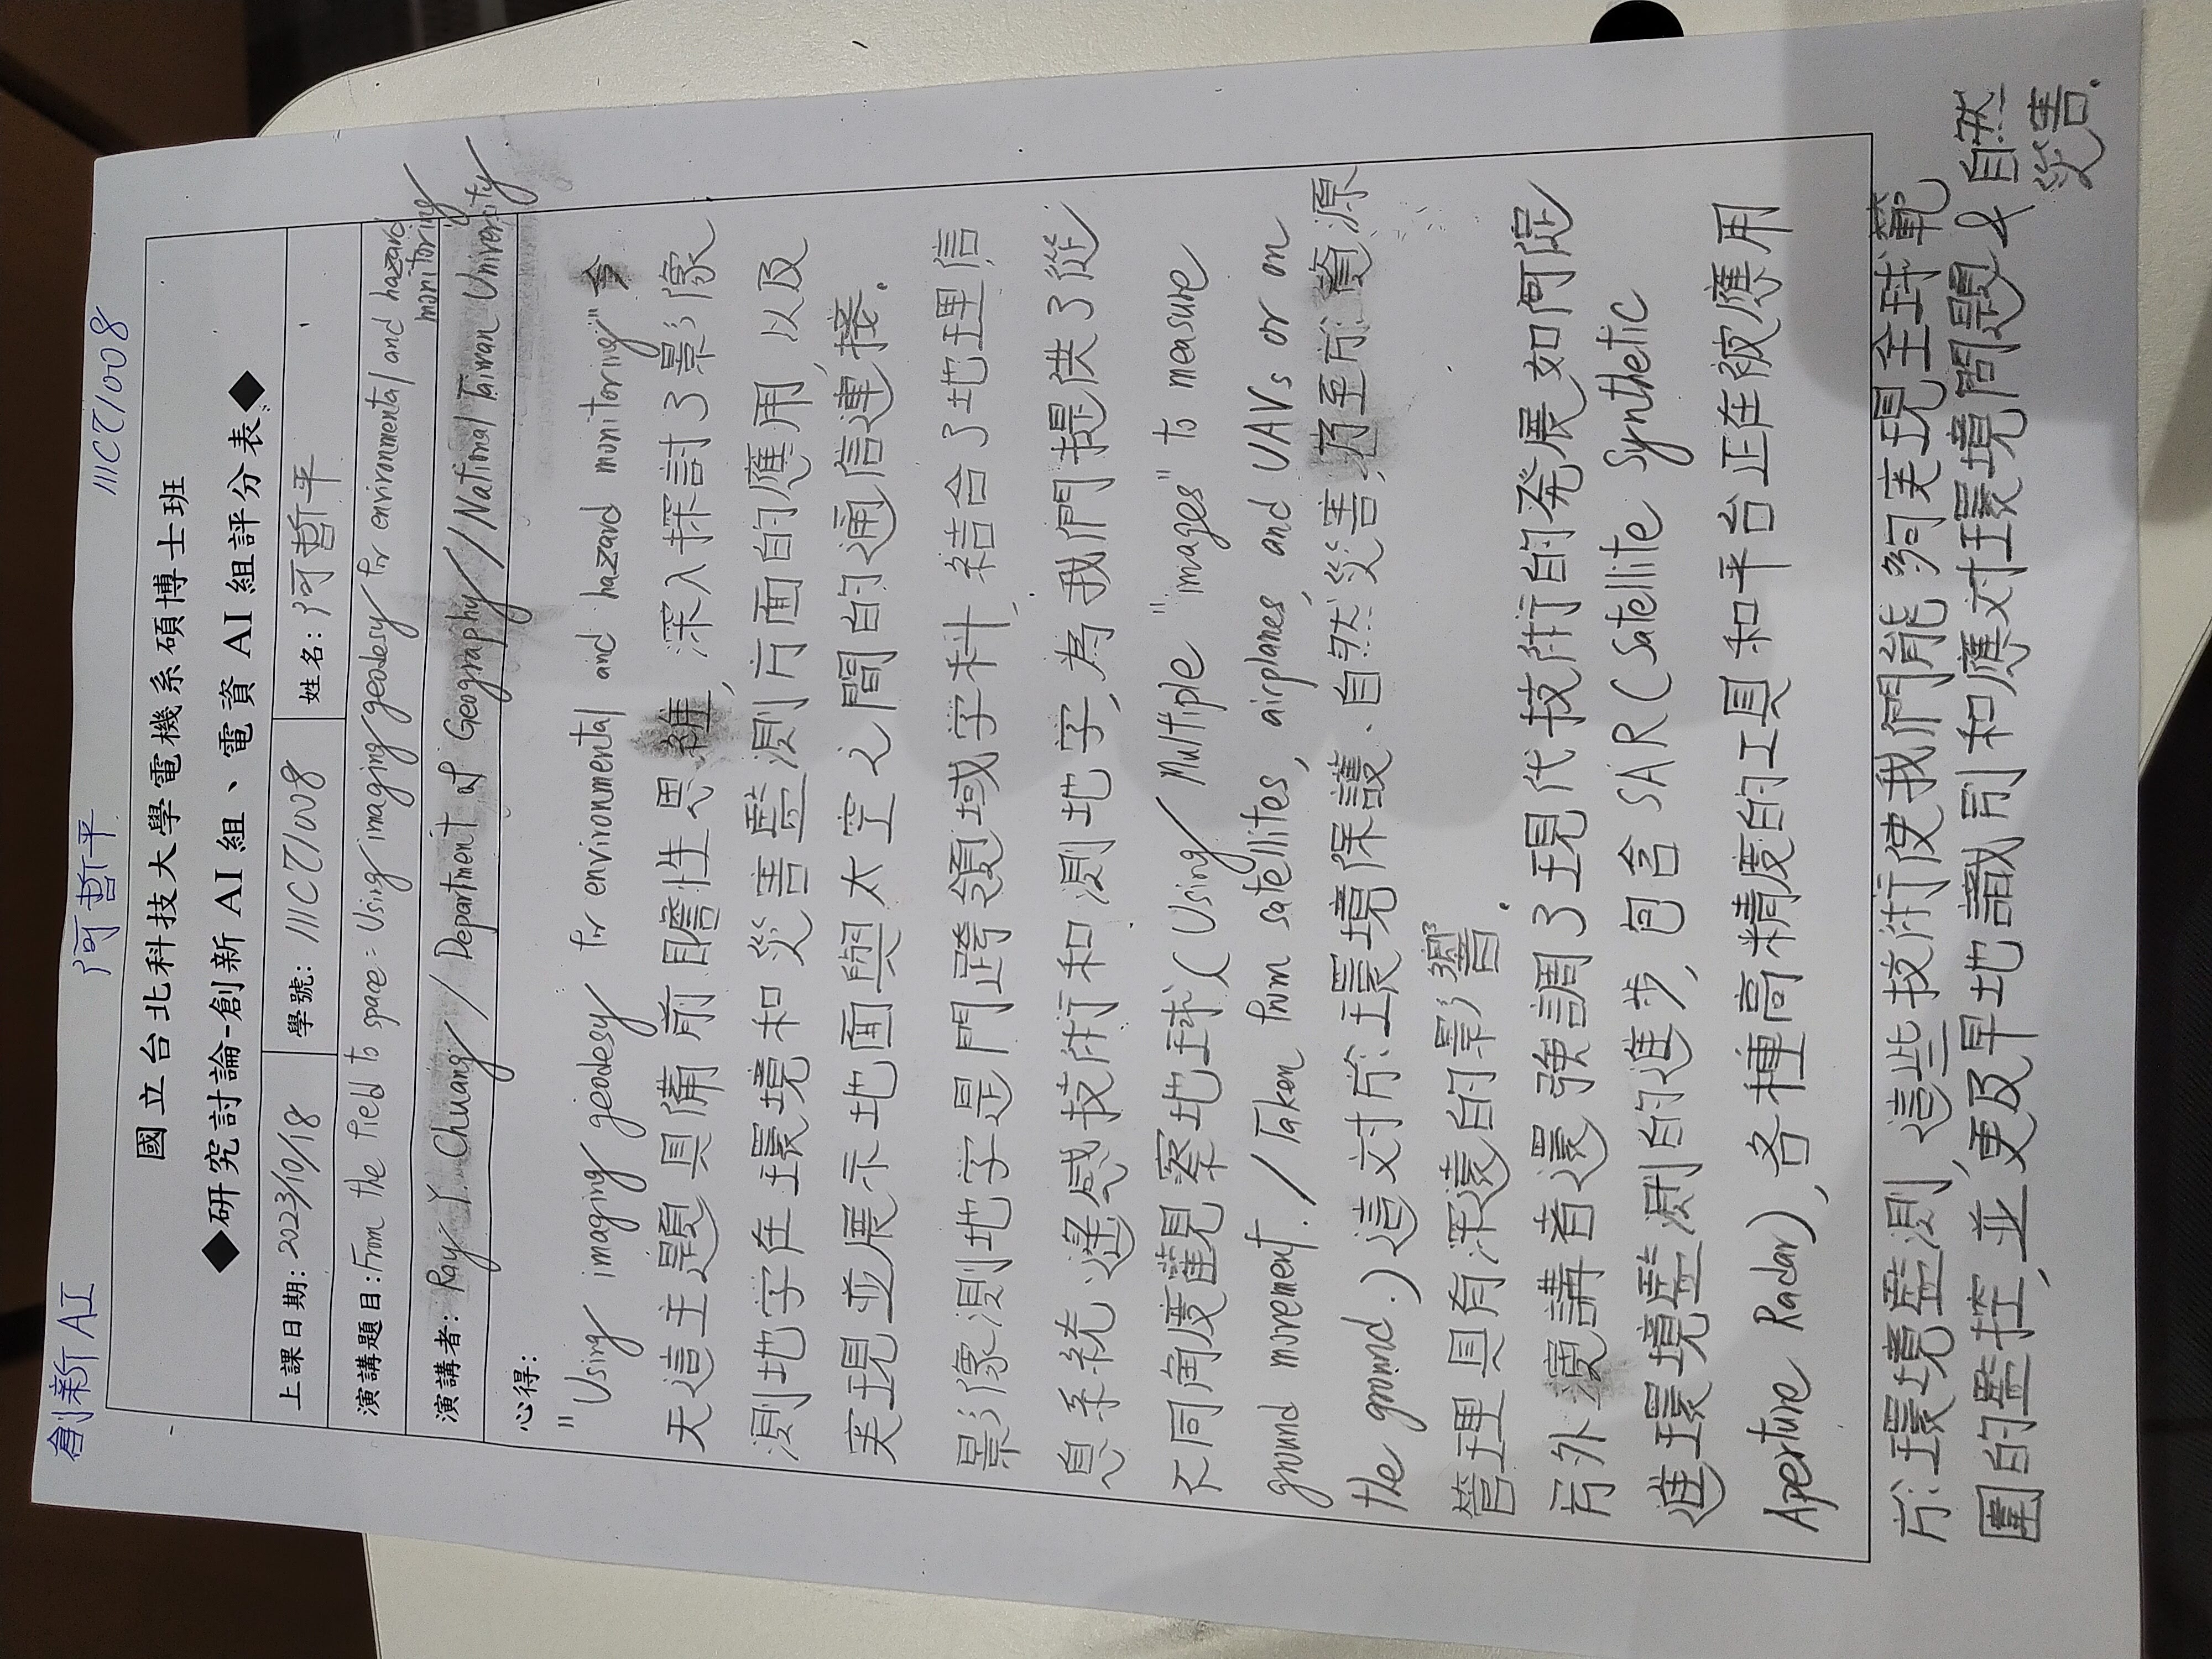 創新AI 阿哲平 111C71008
國立台北科技大學電機系碩博士班
◆研究討論-創新 AI 組、電資 AI 組評分表◆
上課日期: 2023/10/18 學號: 111C71008 姓名: 阿哲平
演講題目: From the field to space: Using imaging geodesy for environmental and hazard
monitoring
演講者: Ray Y. Chuang / Department of Geography / National Taiwan University
心得:
"Using imaging geodesy for environmental and hazard monitoring" 今
天這主題具備前瞻性思維, 深入探討了影像
測地学在環境和災害監測方面的應用, 以及
実現並展示地面與太空之間的通信連接.
影像測地字是門跨領域学科, 結合了地理信
息系統 遙感技術和測地字, 為我們提供了從
不同角度觀察地球 (Using Multiple "images" to measure
ground movement. / Taken from satellites, airplanes, and UAVs or on
the ground.) 這対於環境保護、自然災害, 乃至於資源
管理具有深遠的影響.
另外演講者還強調了現代技術的発展如何促
進環境監測的進步, 包含 SAR (Satellite Synthetic
Aperture Radar), 各種高精度的工具和平台正在被應用
於環境監測, 這些技術使我們能夠実現全球範
圍的監控, 並更及早地識別和應対環境問題 & 自然
災害.